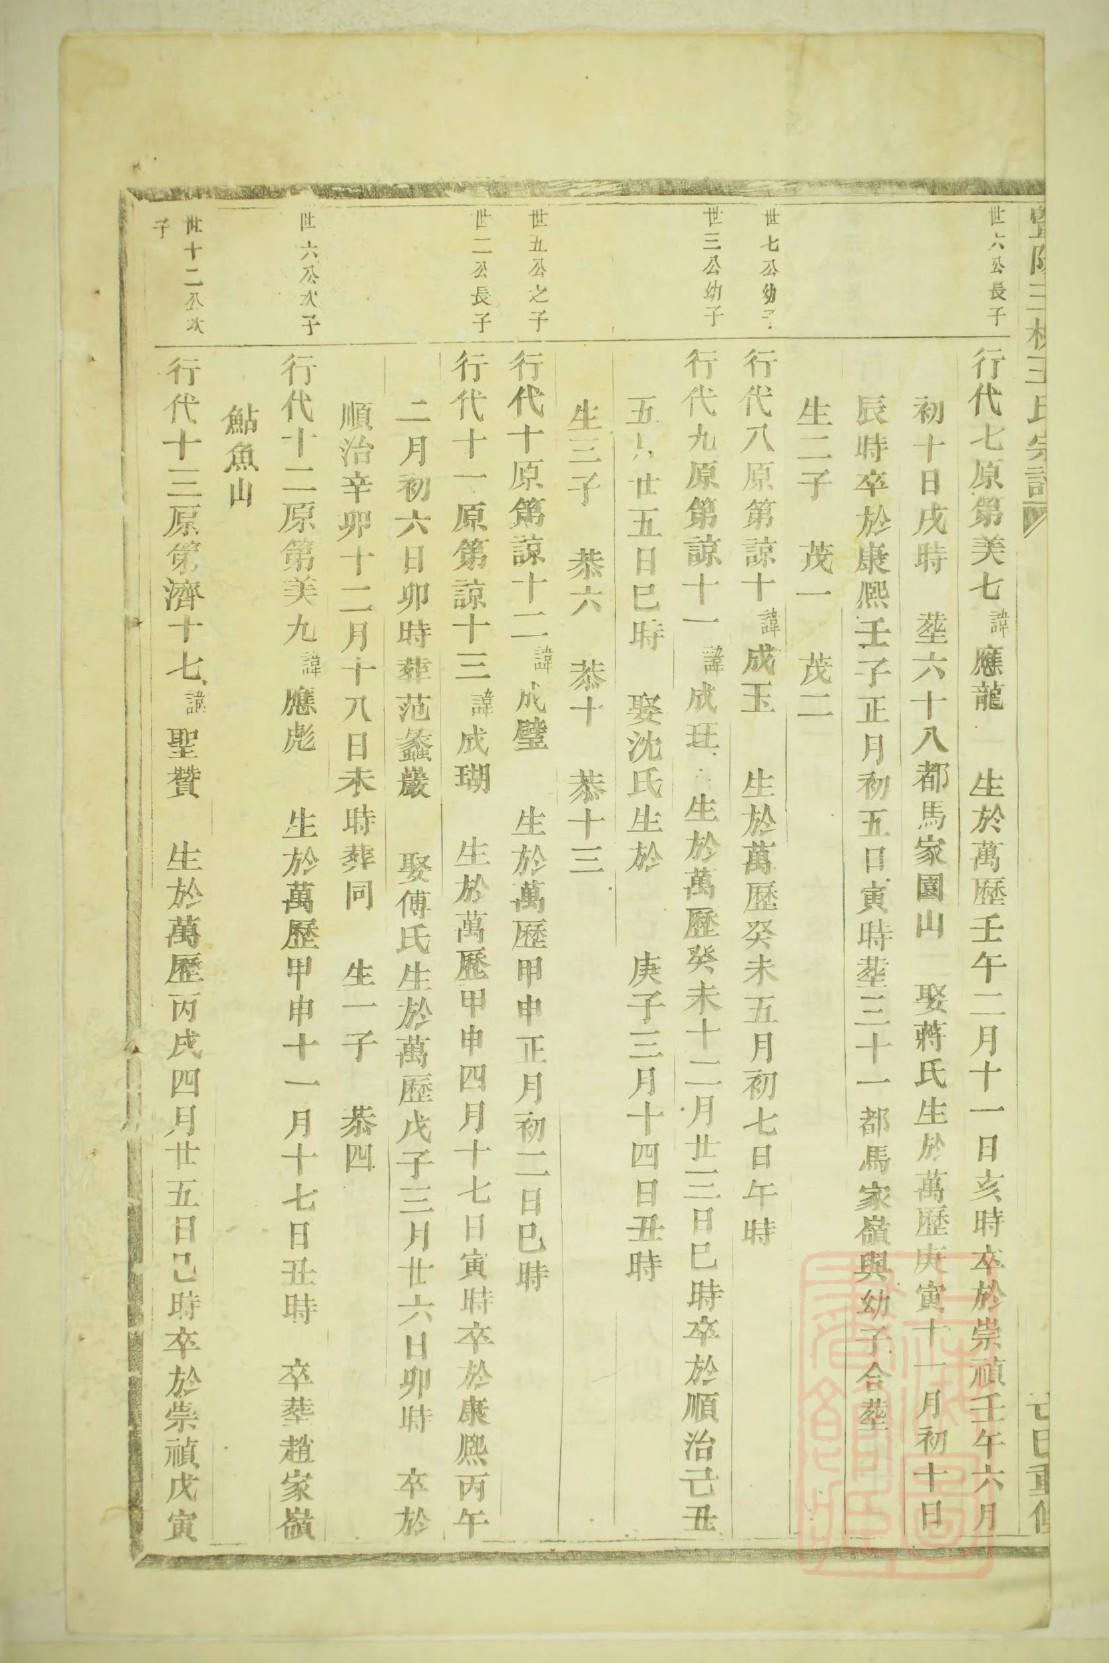 暨陽王氏宗譜
重修
世六公長子
行代七原第美七諱應龍 生於萬歷壬午二月十一日亥時卒於崇禎壬午六月
初十日戌時 塟六十八都馬家園山 娶蔣氏生於萬歷庚寅十一月初十日
辰時卒於康熙壬子正月初五日寅時塟三十一都馬家嶺與幼子合塟
生二子 茂一 茂二
世七公幼子
行代八原第諒十諱成玉 生於萬歷癸未五月初七日午時
世三公幼子
行代九原第諒十一諱成 生於萬歷癸未十二月廿三日巳時卒於順治己丑
五月廿五日巳時 娶沈氏生於 庚子三月十四日丑時
生三子 恭六 恭十 恭十三
世五公之子
行代十原第諒十二諱成璧 生於萬歷甲申正月初二日巳時
世二公長子
行代十一原第諒十三諱成瑚 生於萬歷甲申四月十七日寅時卒於康熙丙午
二月初六日卯時葬范蠡巖 娶傅氏生於萬歷戊子三月廿六日卯時 卒於
順治辛卯十二月十八日未時葬同 生一子 恭四
世六公次子
行代十二原第美九諱應彪 生於萬歷甲申十一月十七日丑時 卒塟趙家嶺
鮎魚山
世十二公次
子
行代十三原第濟十七諱聖贊 生於萬歷丙戌四月廿五日巳時卒於崇禎戊寅